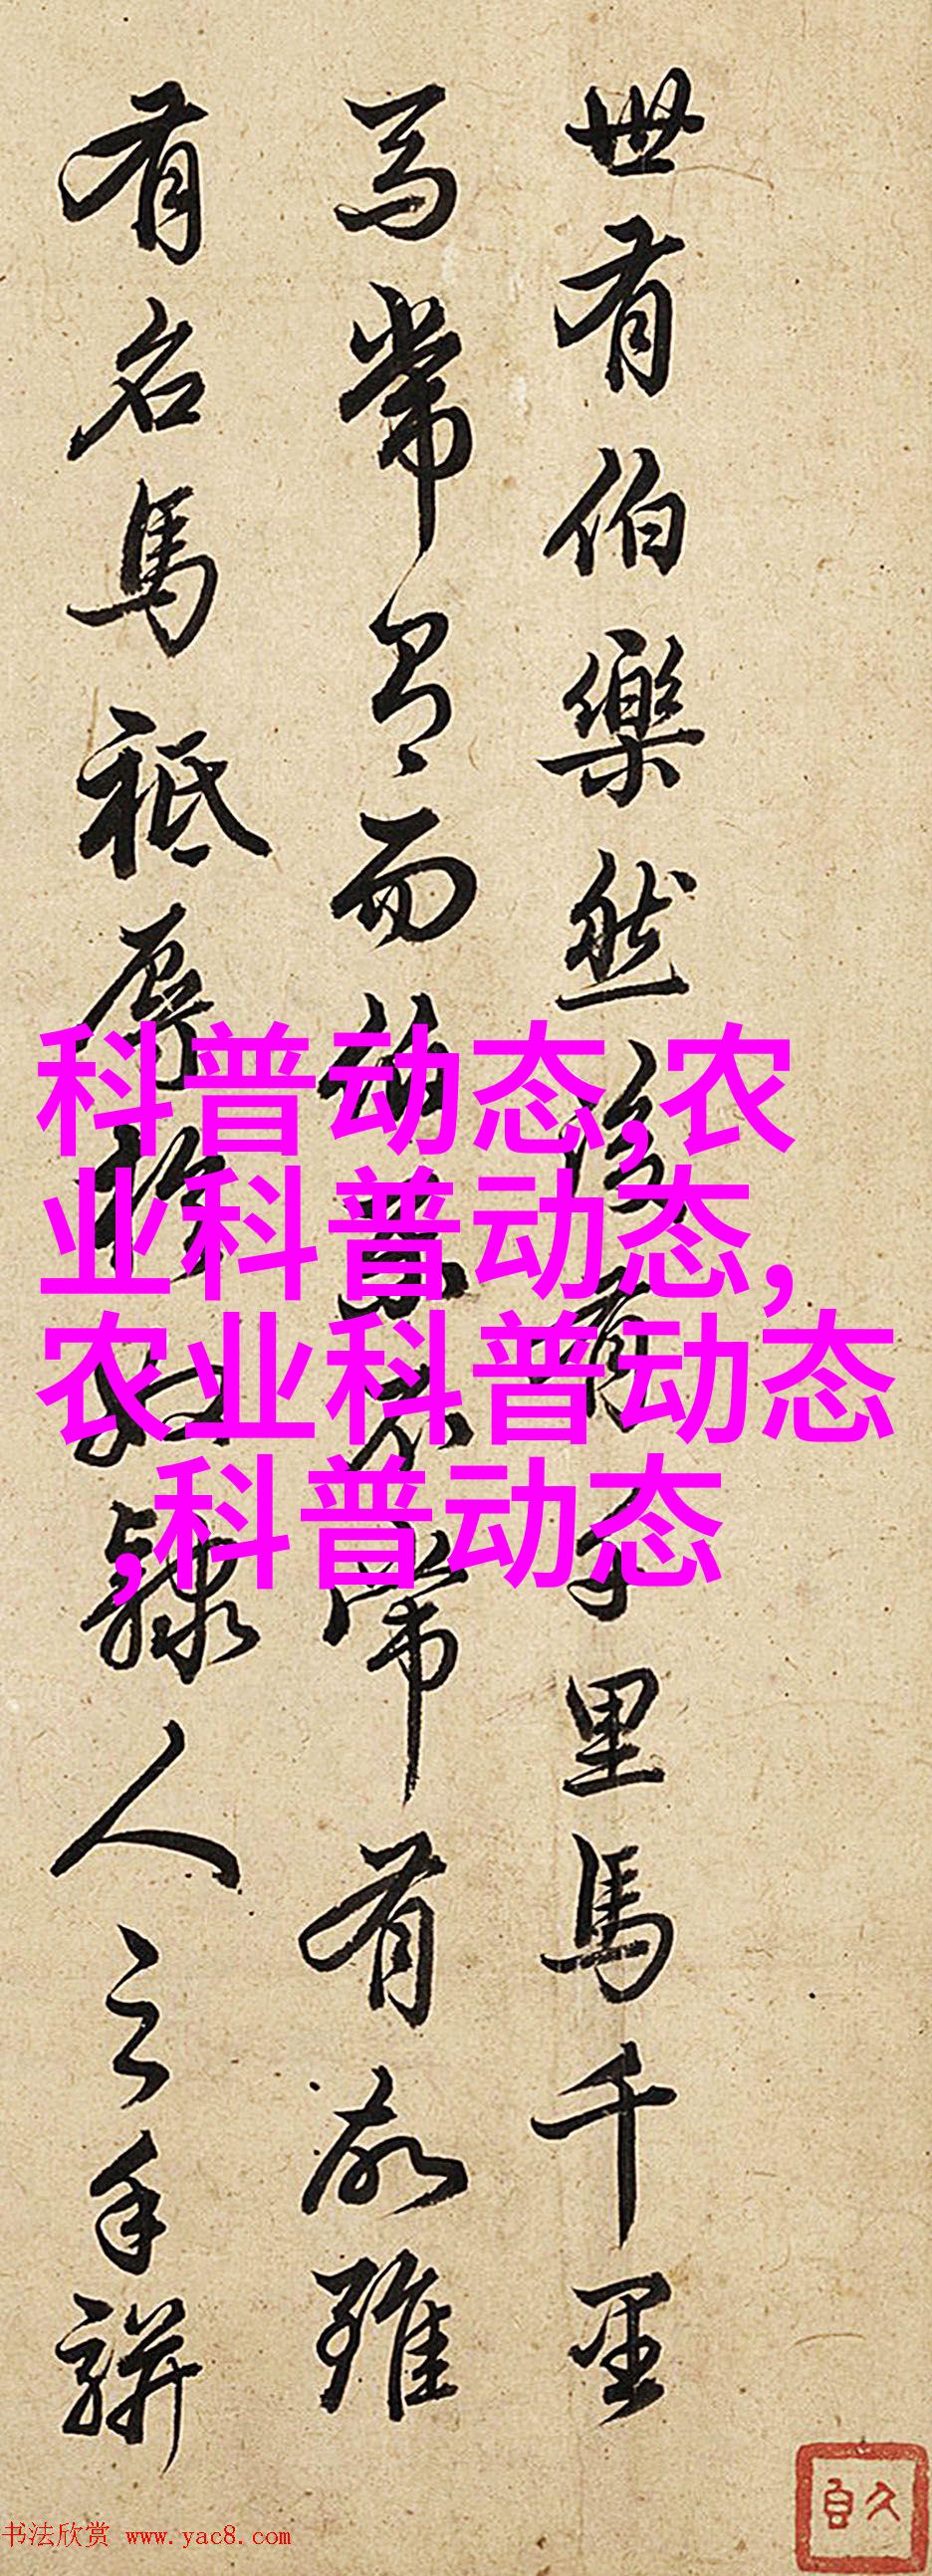 世有伯樂然後有千里馬千里
馬常有而伯樂不常有故雖
有名馬祗辱於奴隸人之手駢
科普动态,农
业科普动态,
农业科普动态
,科普动态
书法欣赏 www.yac8.com